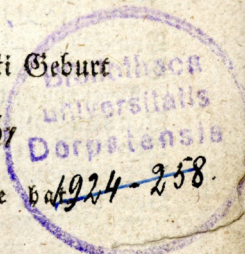 ti Geburt
Bibliotheca
universitatis
Dorpatensis
e hat
1924-258.